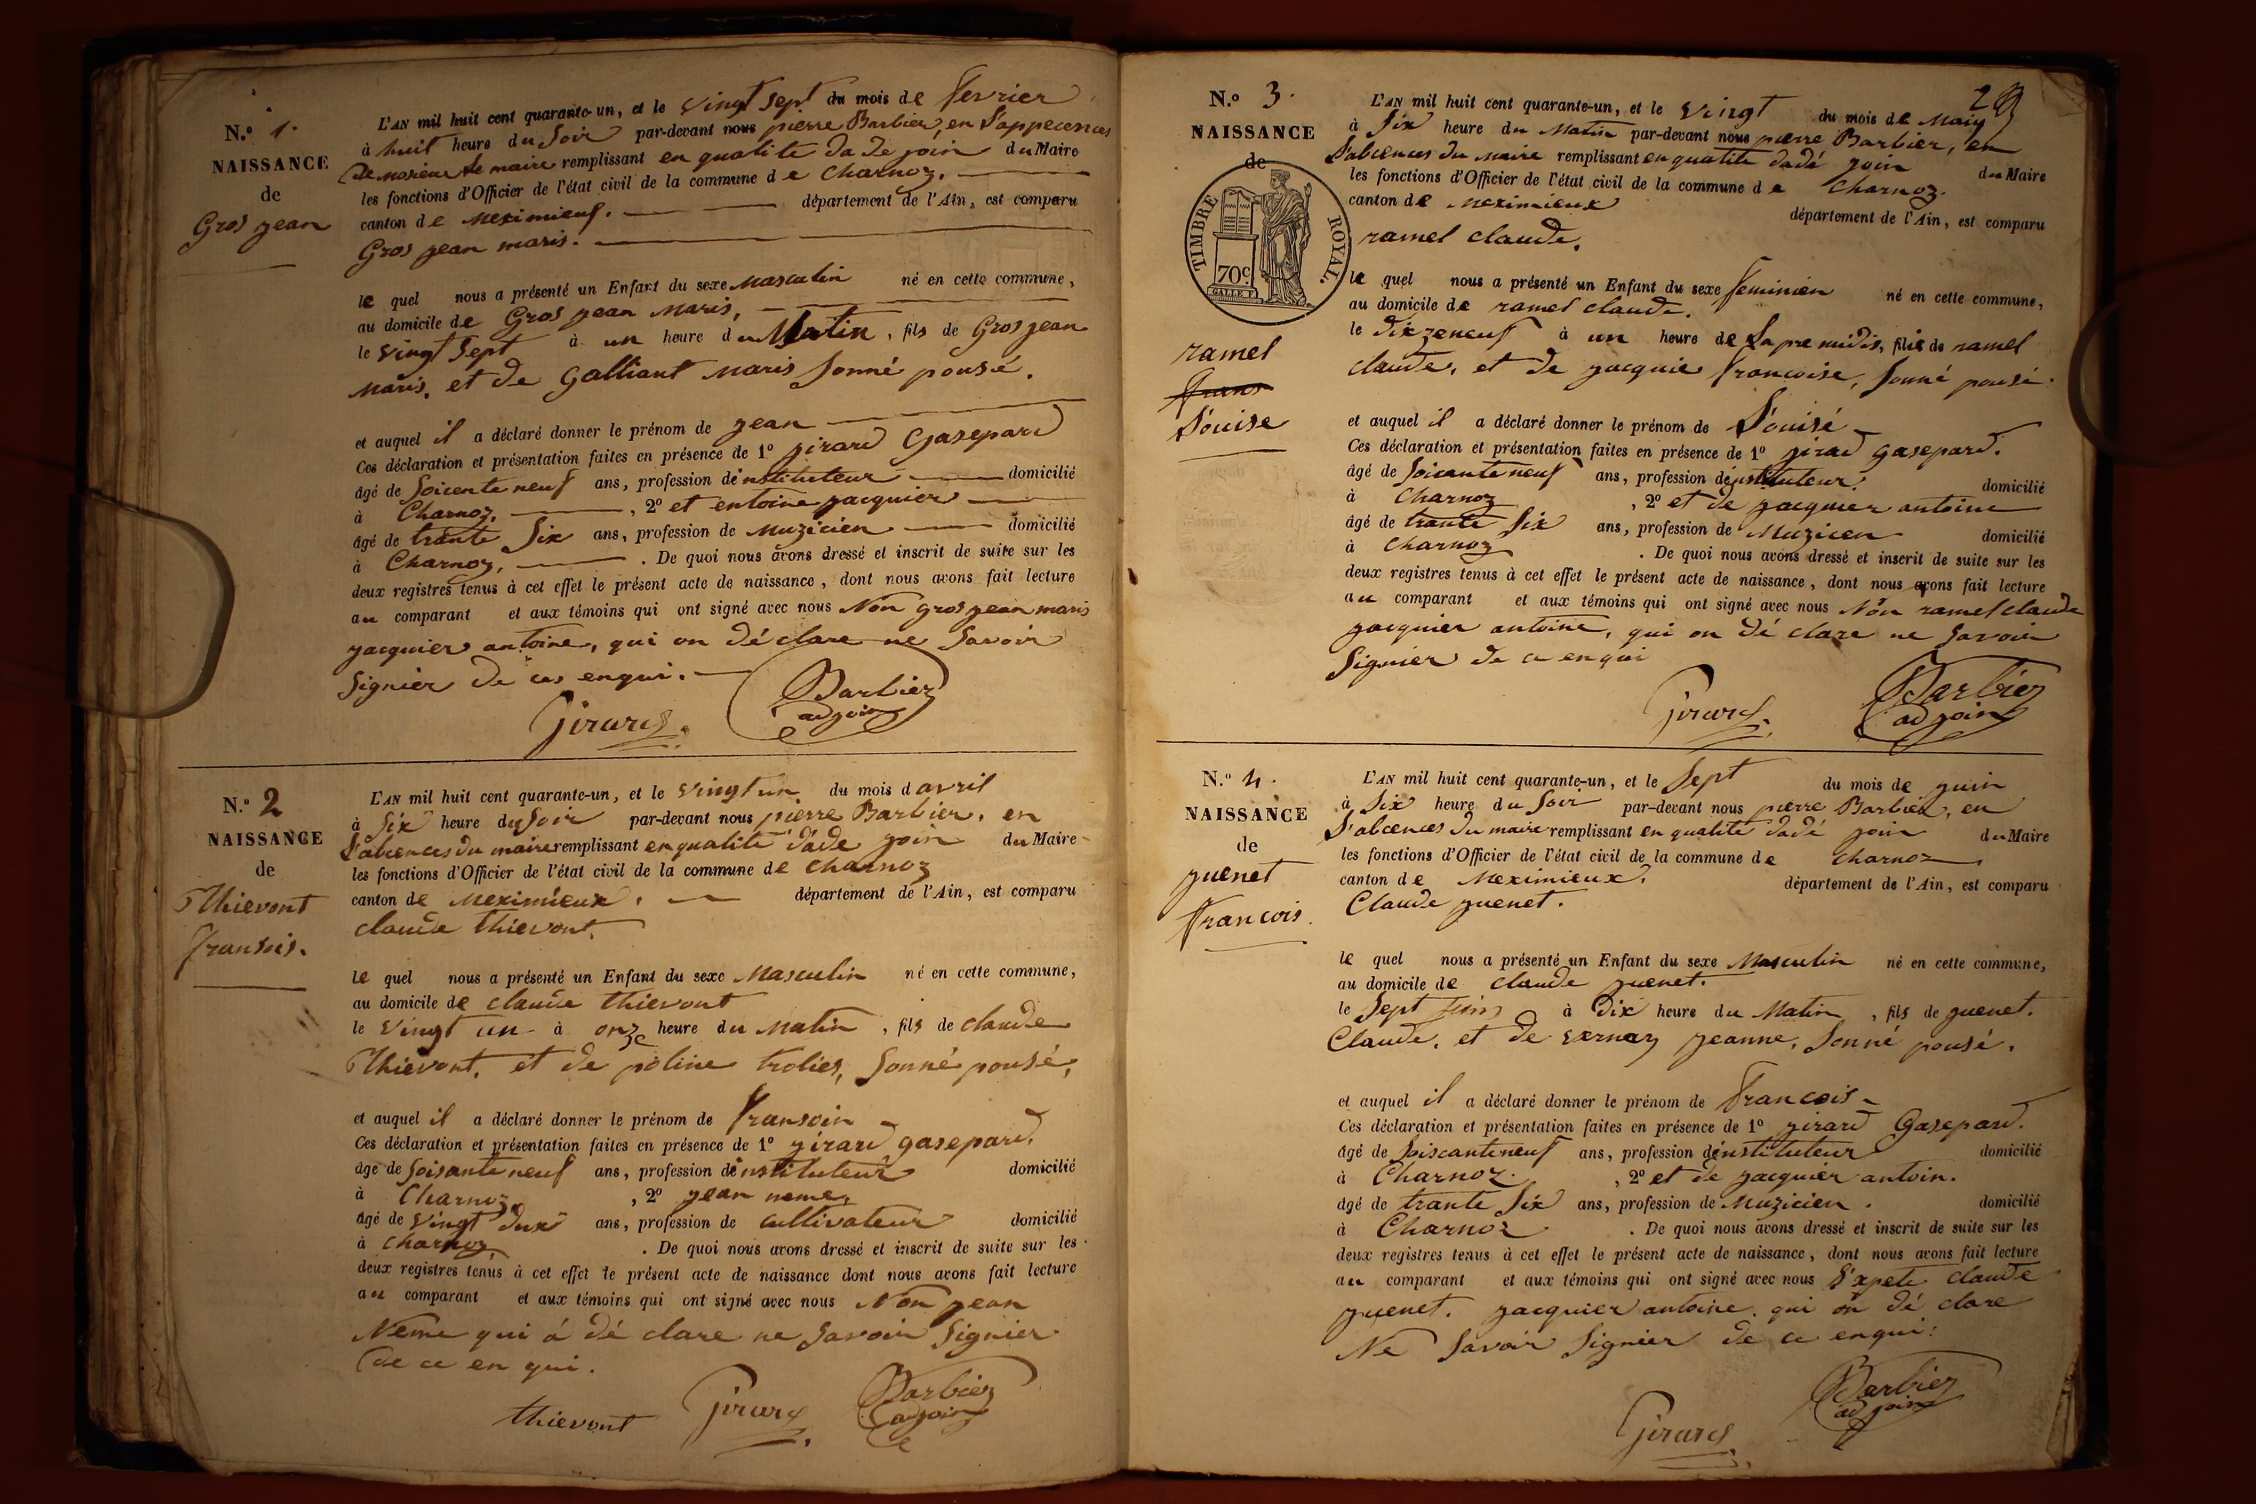 N.º 1.
NAISSANCE
de
Gros jean
L'AN mil huit cent quarante-un, et le vingt sept du mois de fevrier
à huit heure du Soir par-devant nous pierre Barbier, en
le maire remplissant en qualite da de join du Maire
les fonctions d'Officier de l'état civil de la commune de Charnoz.
canton de Meximieux. département de l'Ain, est comparu
Gros jean maris.
le quel nous a présenté un Enfant du sexe Masculin né en cette commune,
au domicile de Gros jean Maris,
le vingt Sept à un heure du Matin, fils de Gros jean
Maris, et de Galliant Maris Sonné pousé.
et auquel il a déclaré donner le prénom de jean
Ces déclaration et présentation faites en présence de 1º jirard Gasepard
âgé de Soicente neuf ans, profession de instituteur domicilié
à Charnoz, , 2º et entoine jacquier
âgé de trante Six ans, profession de Muzicien domicilié
à Charnoz, . De quoi nous avons dressé et inscrit de suite sur les
deux registres tenus à cet effet le présent acte de naissance, dont nous avons fait lecture
au comparant et aux témoins qui ont signé avec nous Non gros jean maris
jacquier antoine, qui on dé clare ne Savoir
Signier de ces enqui.
Girard. Barbier
adjoin
N.º 2
NAISSANCE
de
Thievont
fransois.
L'AN mil huit cent quarante-un, et le vingt un du mois d avril
à Six heure du Soir par-devant nous pierre Barbier, en
L'abcences du maire remplissant en qualité dade join du Maire
les fonctions d'Officier de l'état civil de la commune de Charnoz
canton de Meximieux. département de l'Ain, est comparu
claude thievont.
le quel nous a présenté un Enfant du sexe Masculin né en cette commune,
au domicile de claude thievont
le vingt un à onze heure du Matin, fils de claude
Thievont, et de poline trolies, Sonné pousé,
et auquel il a déclaré donner le prénom de fransoin
Ces déclaration et présentation faites en présence de 1º girard gasepard.
âgé de Soisante neuf ans, profession de instituteur domicilié
à Charnoz, , 2º jean neme,
âgé de vingt dux ans, profession de cultivateur domicilié
à Charnoz . De quoi nous avons dressé et inscrit de suite sur les
deux registres tenus à cet effet le présent acte de naissance dont nous avons fait lecture
au comparant et aux témoins qui ont signé avec nous Non jean
Neme qui á dé clare ne Savoir Signier
de ce en qui.
thievont Girard Barbier
adjoin
N.º 3.
NAISSANCE
de
TIMBRE ROYAL.
70c.
ramel
frans
Louise
2
L'AN mil huit cent quarante-un, et le vingt du mois de Maiy
à Six heure du Matin par-devant nous pierre Barbier, en
L'abcences du Maire remplissant en qualité dadé join du Maire
les fonctions d'Officier de l'état civil de la commune de Charnoz.
canton de Meximieux département de l'Ain, est comparu
ramel claude.
le quel nous a présenté un Enfant du sexe feminien né en cette commune,
au domicile de ramel claude.
le dixzeneuf à un heure de Lapremidis, filie de ramel
claude, et de jacquier francoise, Sonné pousé.
et auquel il a déclaré donner le prénom de Louisé
Ces déclaration et présentation faites en présence de 1º girad gasepard.
âgé de Soicanteneuf ans, profession de instituteur. domicilié
à Charnoz , 2º et de jacquier antoine
âgé de trante Six ans, profession de Muzicen domicilié
à Charnoz . De quoi nous avons dressé et inscrit de suite sur les
deux registres tenus à cet effet le présent acte de naissance, dont nous avons fait lecture
au comparant et aux témoins qui ont signé avec nous Non ramel claude
jacquier antoine, qui on dé clare ne Savoir
Signier de ce enqui
Girard. Barbier
adjoin
N.º 4.
NAISSANCE
de
juenet
francois.
L'AN mil huit cent quarante-un, et le Sept du mois de juin
à Six heure du Soir par-devant nous pierre Barbier, en
L'abcences du maire remplissant en qualité dadé join du Maire
les fonctions d'Officier de l'état civil de la commune de Charnoz
canton de Meximieux. département de l'Ain, est comparu
Claude juenet.
le quel nous a présenté un Enfant du sexe Masculin né en cette commune,
au domicile de claude juenet.
le Sept juin à Dix heure du Matin, fils de juenet.
Claude, et de vernay jeanne, Sonné pousé.
et auquel il a déclaré donner le prénom de francois
Ces déclaration et présentation faites en présence de 1º girard Gasepard.
âgé de Soiscanteneuf ans, profession de instituteur domicilié
à Charnoz. , 2º et de jacquier antoin.
âgé de trante Six ans, profession de Muzicien. domicilié
à Charnoz . De quoi nous avons dressé et inscrit de suite sur les
deux registres tenus à cet effet le présent acte de naissance, dont nous avons fait lecture
au comparant et aux témoins qui ont signé avec nous L'xpete claude
juenet. jacquier antoine. qui on dé clare
Ne Savoir Signier de ce enqui.
Girard. Barbier
adjoin